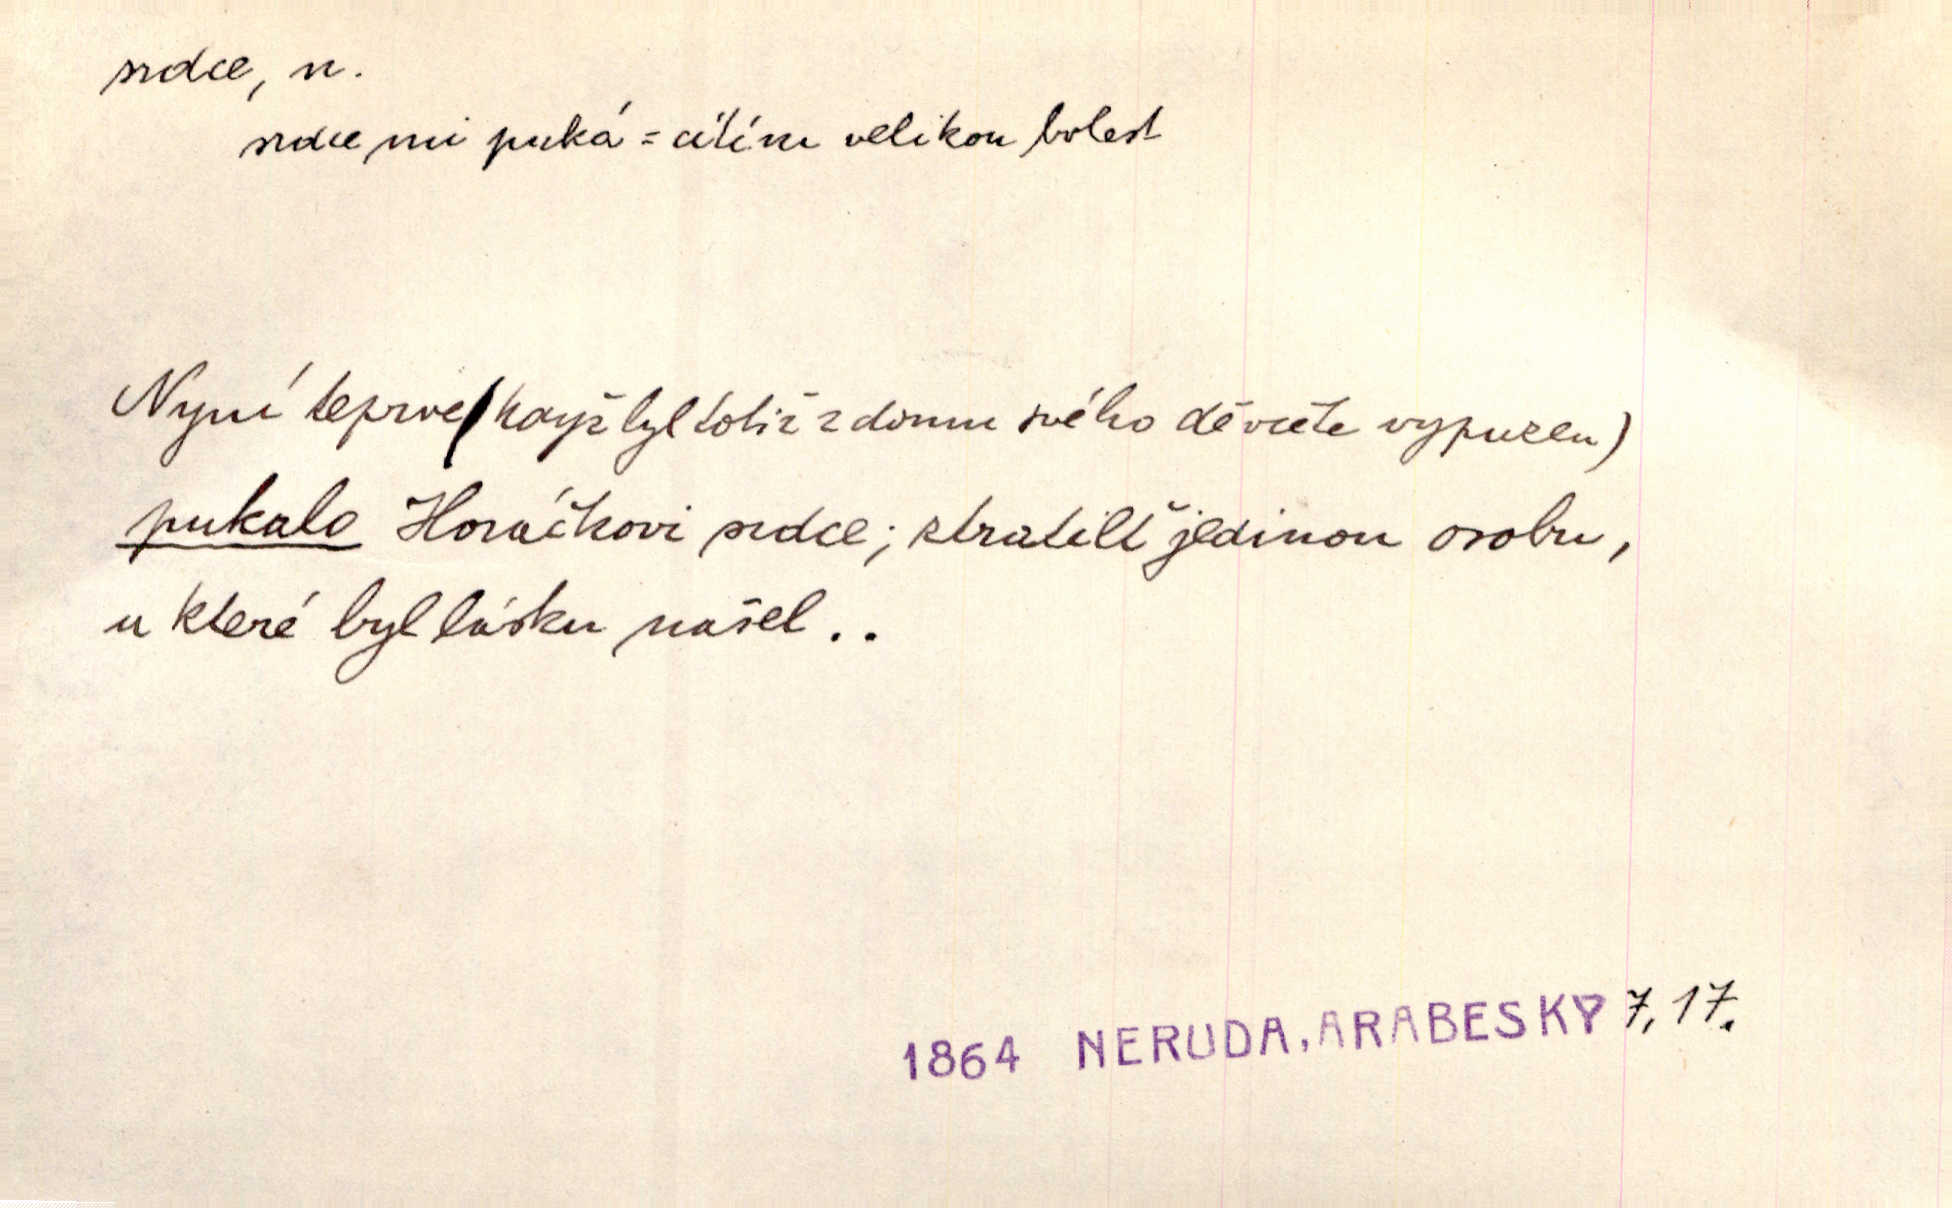 srdce, n.
srdce mi puká = cítím velikou bolest
Nyní teprve (když byl totiž z domu svého děvčete vypuzen)
pukalo Horáčkovi srdce; ztratilť jedinou osobu,
u které byl lásku našel . .
1864 NERUDA, ARABESKY 7, 17.